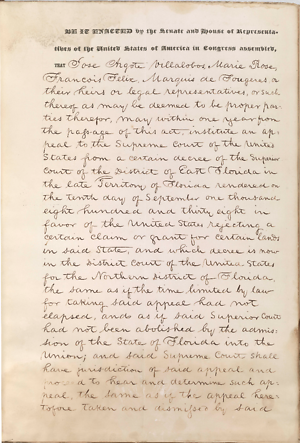 BE IT ENACTED by the Senate and House of Representa-
tives of the United States of America in Congress assembled,
THAT Jose Argote Villalobos Marie Rose,
Francois Felix, Marquis de Fougeres or
their heirs or legal representatives, or such
thereof as may be deemed to be proper par-
ties therefor, may within one year from
the passage of this act, institute an ap-
peal to the Supreme Court of the United
States from a certain decree of the Superior
Court of the District of East Florida in
the late Territory of Florida rendered on
the tenth day of September one thousand
eight hundred and thirty eight in
favor of the United States rejecting a
certain claim or grant for certain lands
in said State, and which decree is now
in the district Court of the United States
for the Northern district of Florida,
the same as if the time limited by law
for taking said appeal had not
elapsed, and as if said Superior Court
had not been abolished by the admis-
sion of the State of Florida into the
Union; and said Supreme Court shall
have jurisdiction of said appeal and
proceed to hear and determine such ap-
peal, the same as if the appeal here-
tofore taken and dismissed by said